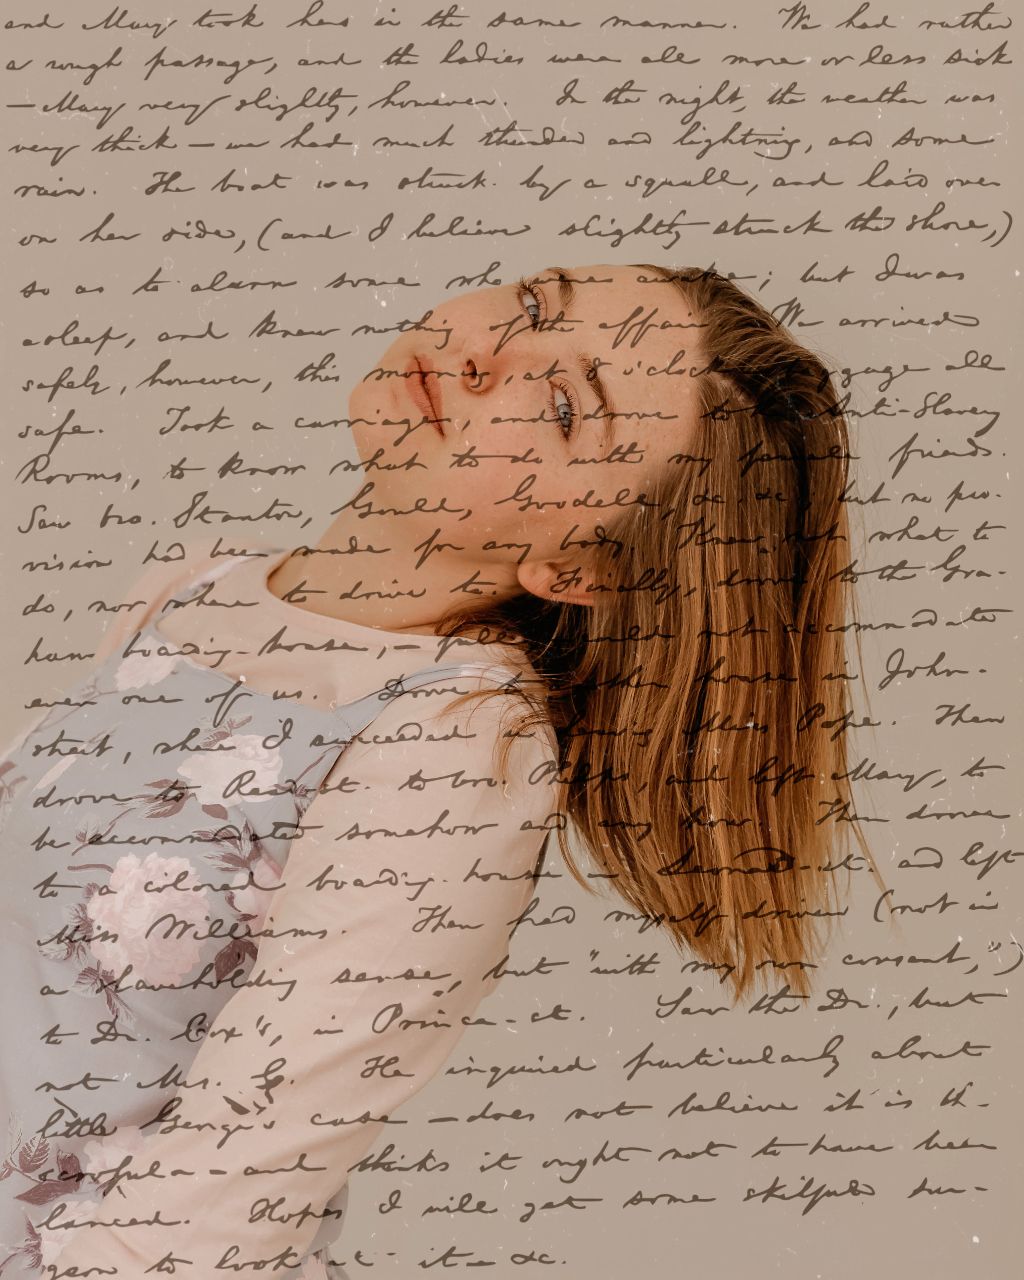 and Mary took hers in the same manner. We had rather
a rough passage, and the ladies were all more or less sick
— Mary very slightly, however. In the night, the weather was
very thick — we had much thunder and lightning, and some
rain. The boat was struck by a squall, and laid over
on her side, (and I believe slightly struck the shore,)
so as to alarm some who were awake; but I was
asleep, and knew nothing of the affair. We arrived
safely, however, this morning, at 8 o'clock all
safe. Took a carriage, and drove to the Anti-Slavery
Rooms, to know what to do with my female friends.
Saw bro. Stanton, Gould, Goodell, &c. &c; but no pro-
vision had been made for any body. Knew not what to
do, nor where to drive to. Finally, drove to the Gra-
ham boarding-house, — full — could not accommodate
even one of us. Drove to another house in John-
street, where I succeeded in leaving Miss Pope. Then
drove to Read-st. to bro. Phelps, and left Mary, to
be accommodated somehow and any how. Then drove
to a colored boarding-house in Leonard-st. and left
Miss Williams. Then had myself driven (not in
a slaveholding sense, but "with my own consent,")
to Dr. Cox's, in Prince-st. Saw the Dr., but
not Mrs. He inquired particularly about
little George's case — does not believe it is th-
scrofula — and thinks it ought not to have been
lanced. Hopes I will get some skilful sur-
geon to look at it &c.